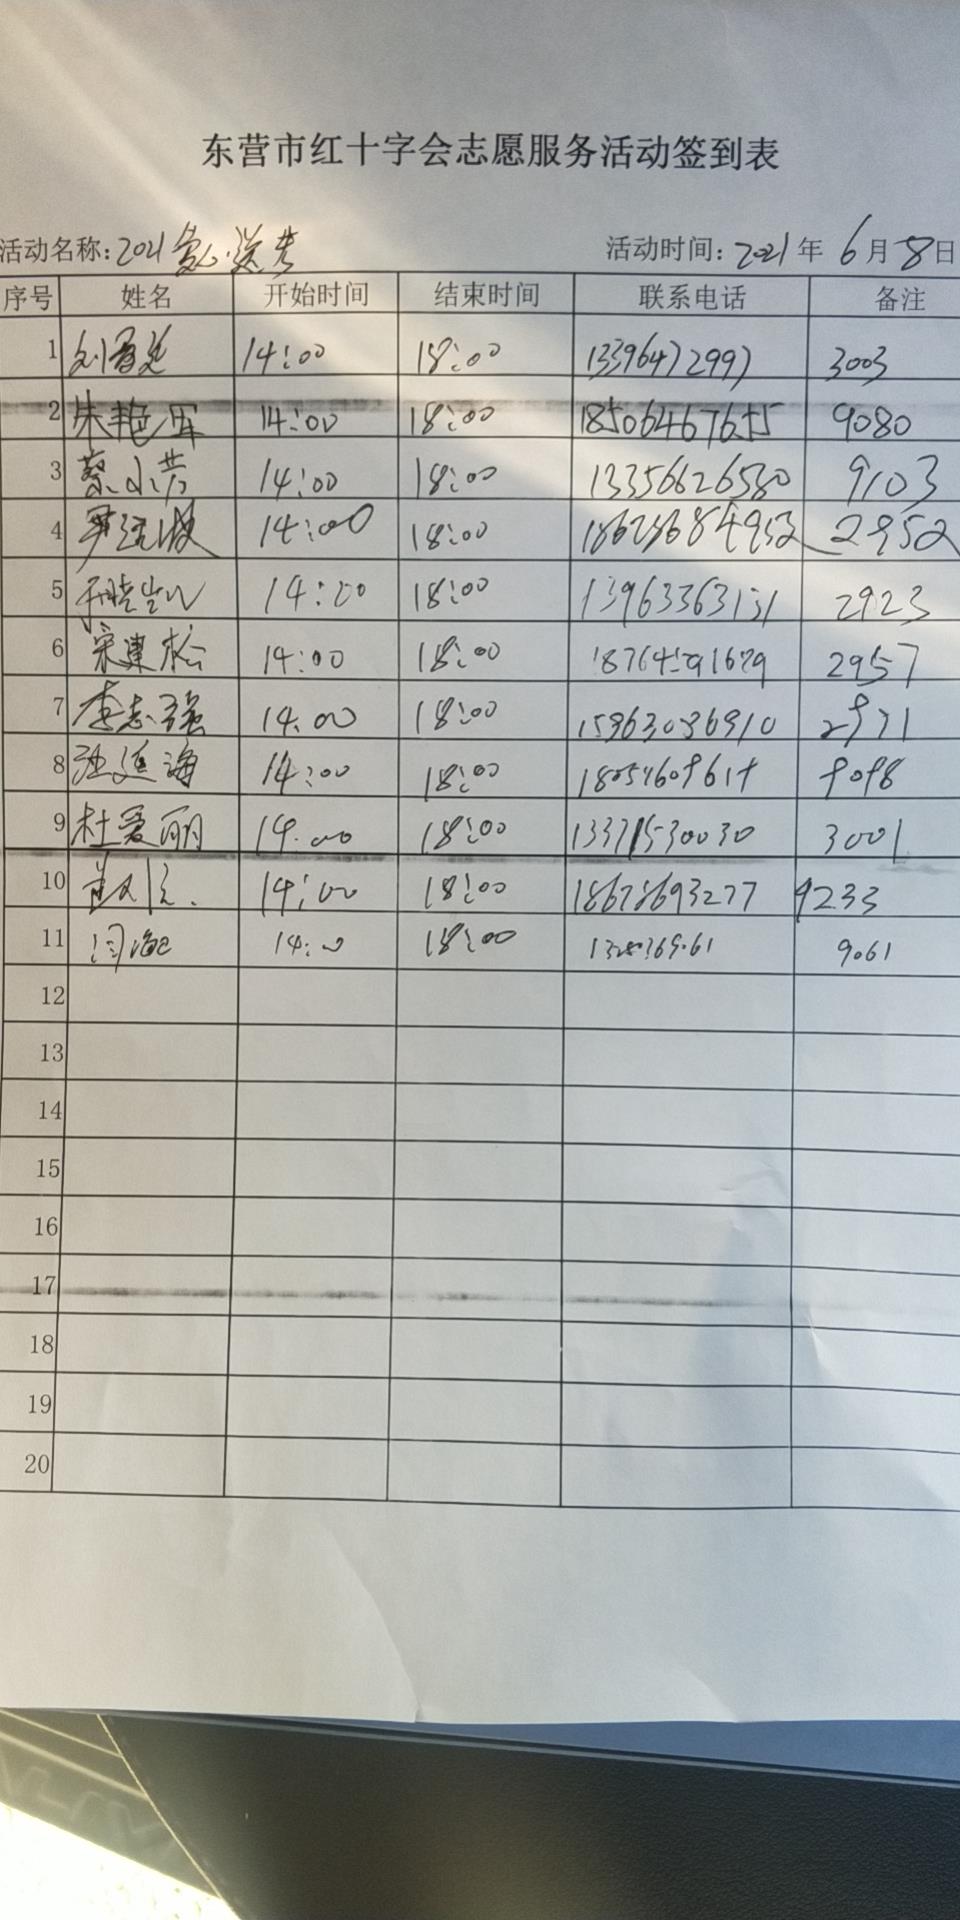 东营市红十字会志愿服务活动签到表
活动名称：2021爱心送考 活动时间：2021年6月8日
序号 姓名 开始时间 结束时间 联系电话 备注
1 14:00 18:00 13396472997 3003
2 朱艳军 14:00 18:00 18506467655 9080
3 蔡小芳 14:00 18:00 13356626580 9103
4 14:00 18:00 2952
5 14:00 18:00 13963363131 2923
6 宋建松 14:00 18:00 2957
7 李志强 14:00 18:00 15963036910 2971
8 海 14:00 18:00 9098
9 杜爱丽 14:00 18:00 13371530030 3001
10 14:00 18:00 18678693277 9233
11 闫海 14:00 18:00 9061
12
13
14
15
16
17
18
19
20